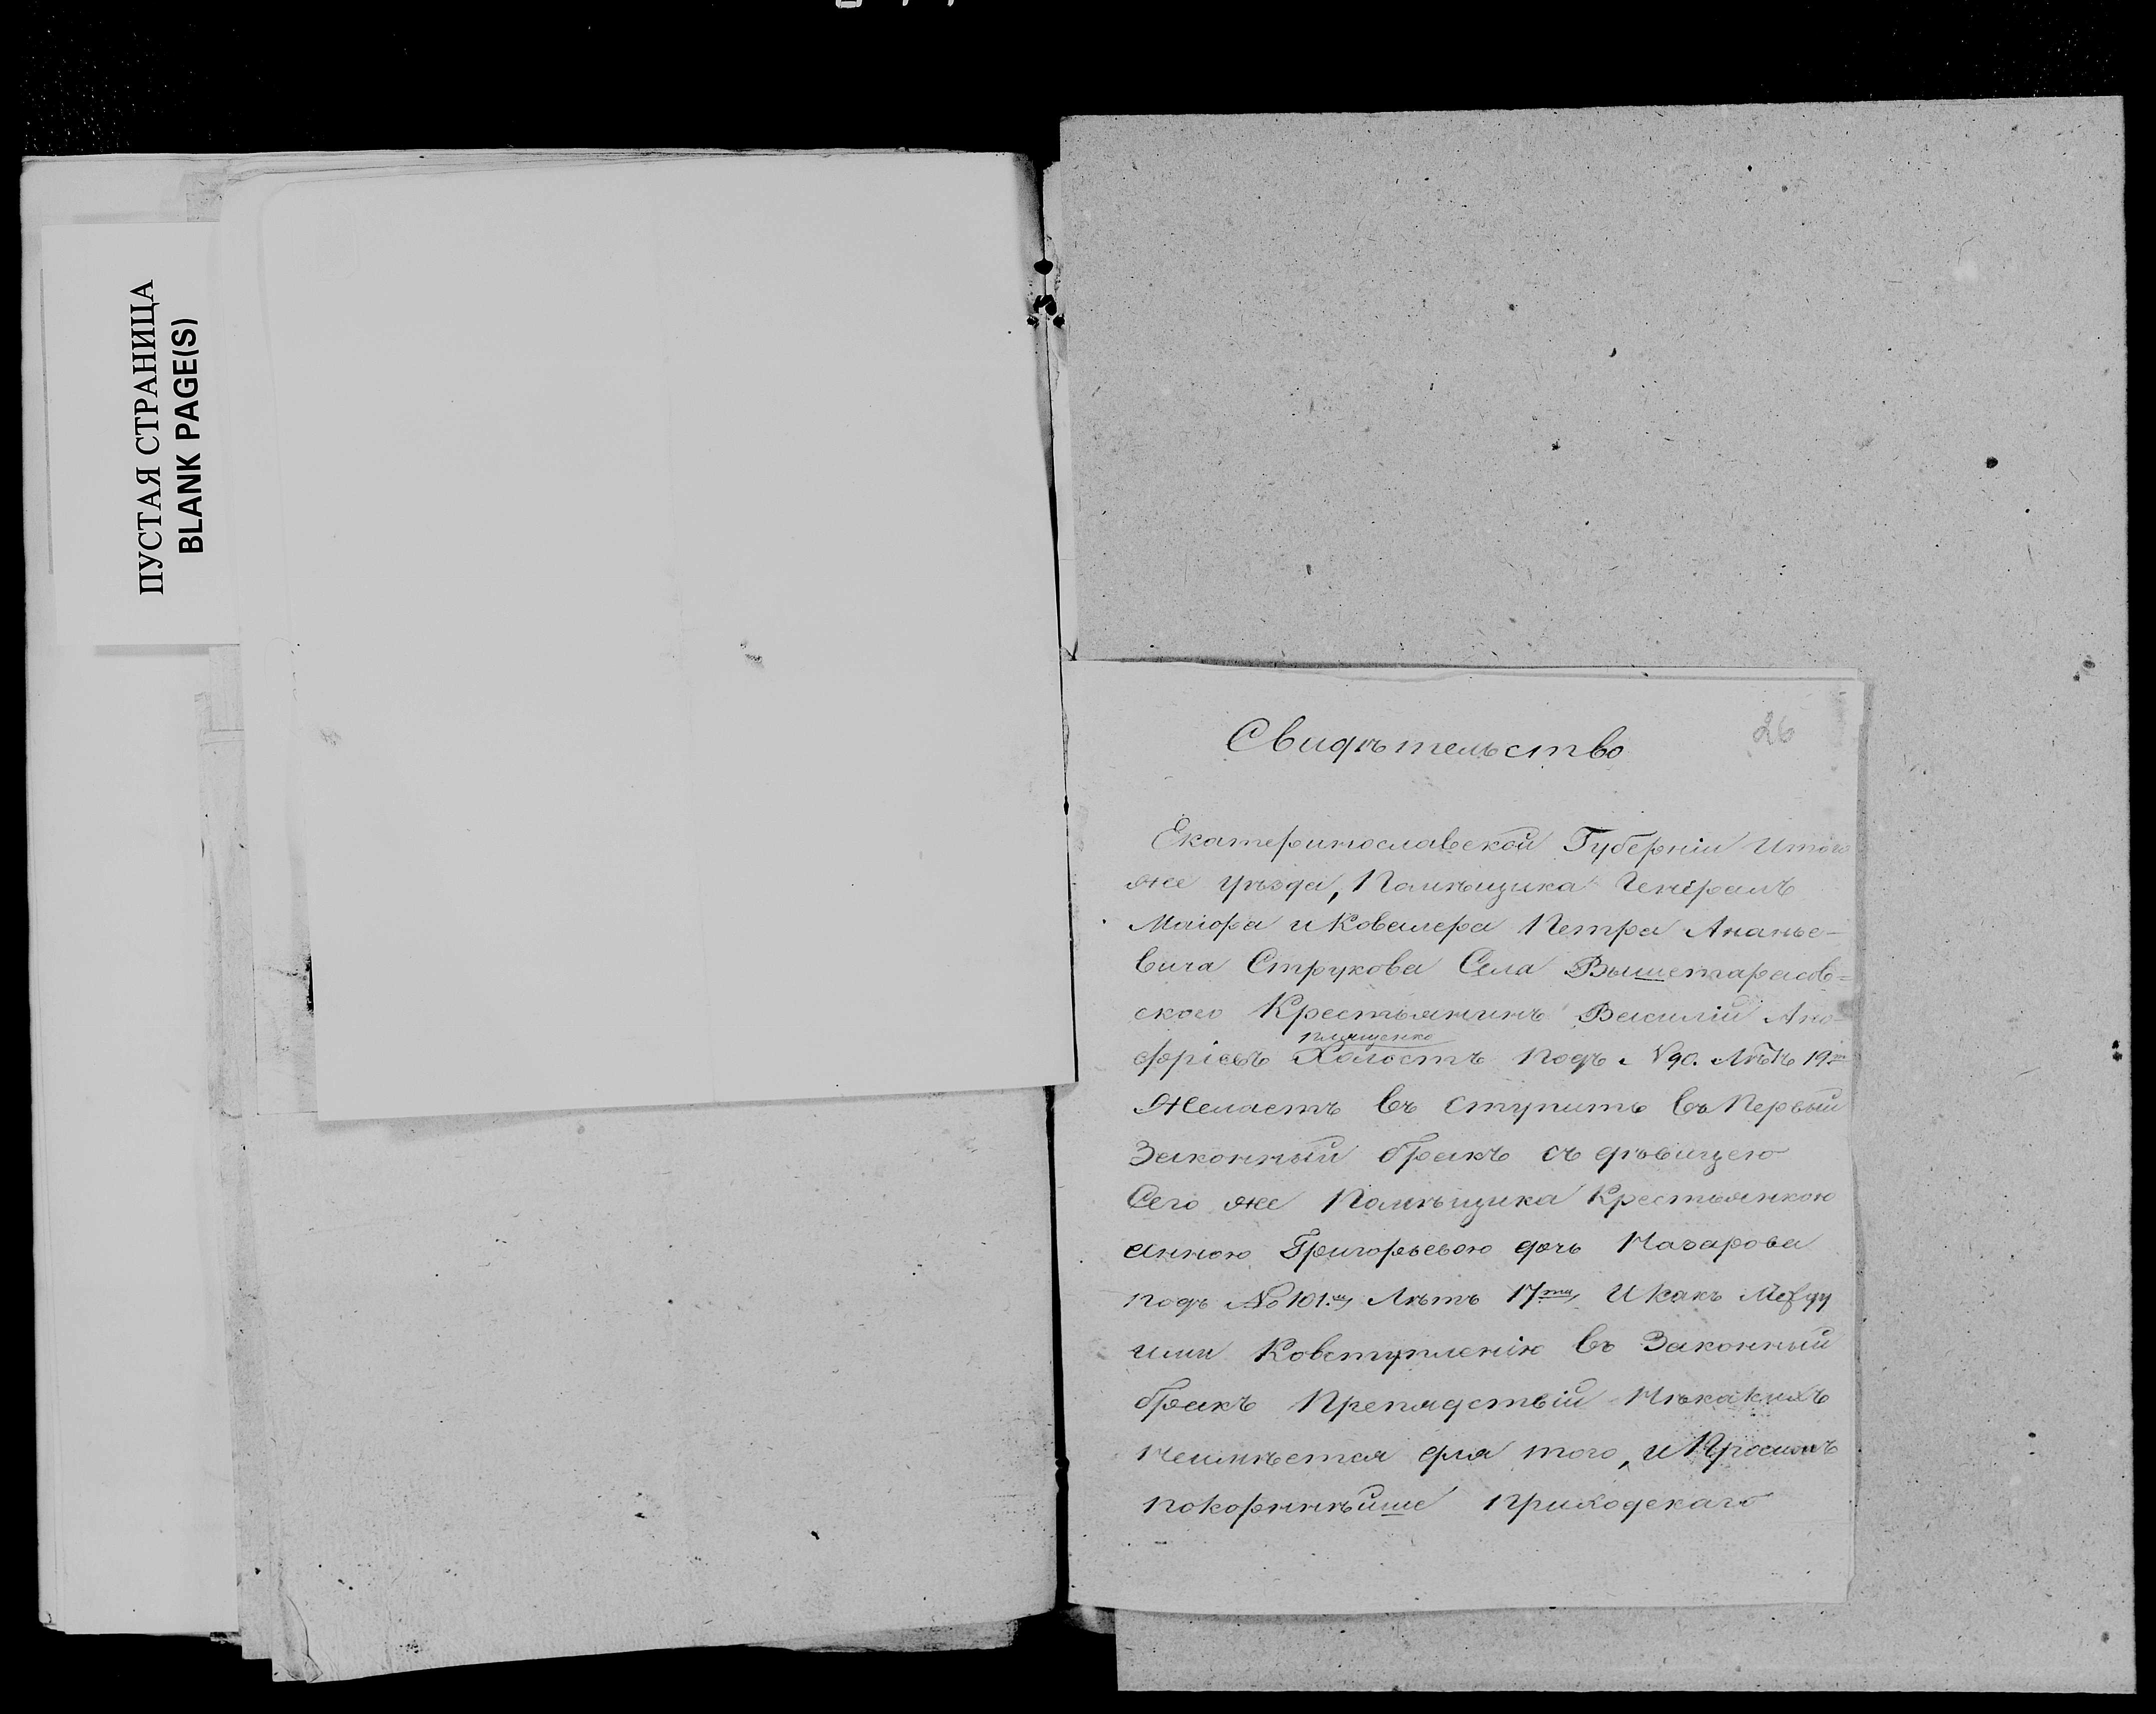 ПУСТАЯ СТРАНИЦА
BLANK PAGE(S)
26
Свидѣтельство
Екатеринославской Губерніи Итого
же уѣзда, Помѣщика Генералъ
Маіора и Ковалера Петра Ананье-
вича Струкова Села Вышетарасов=
ского Крестьянинъ Василій Ано-
плященко
фріевъ Холостъ подъ № 90. Лѣтъ 19
Желаетъ въ ступить въ Первый
Законный бракъ съ дѣвицею
Сего же Помѣщика Крестьянкою
Анною Григорьевою дочь Назарова
подъ № 101.мъ Лѣтъ 17ти, И какъ Между
ими Ковступленію въ Законный
бракъ Препядствій Нѣкакихъ
Неимѣется для того, и Просимъ
покорннѣйше приходскаго